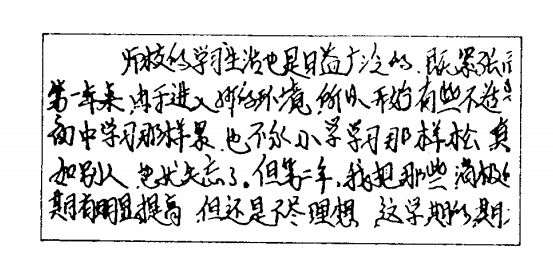 师校的学习生活也是日益广泛的，既紧张
第一年来 由于进入新的环境 所以开始有些不适
初中学习那样累 也不永小学学习那样松 真
如别人 也也失忘了。但第二年，我把那些消极
期有明显提高 但还是不尽理想 这学期的期